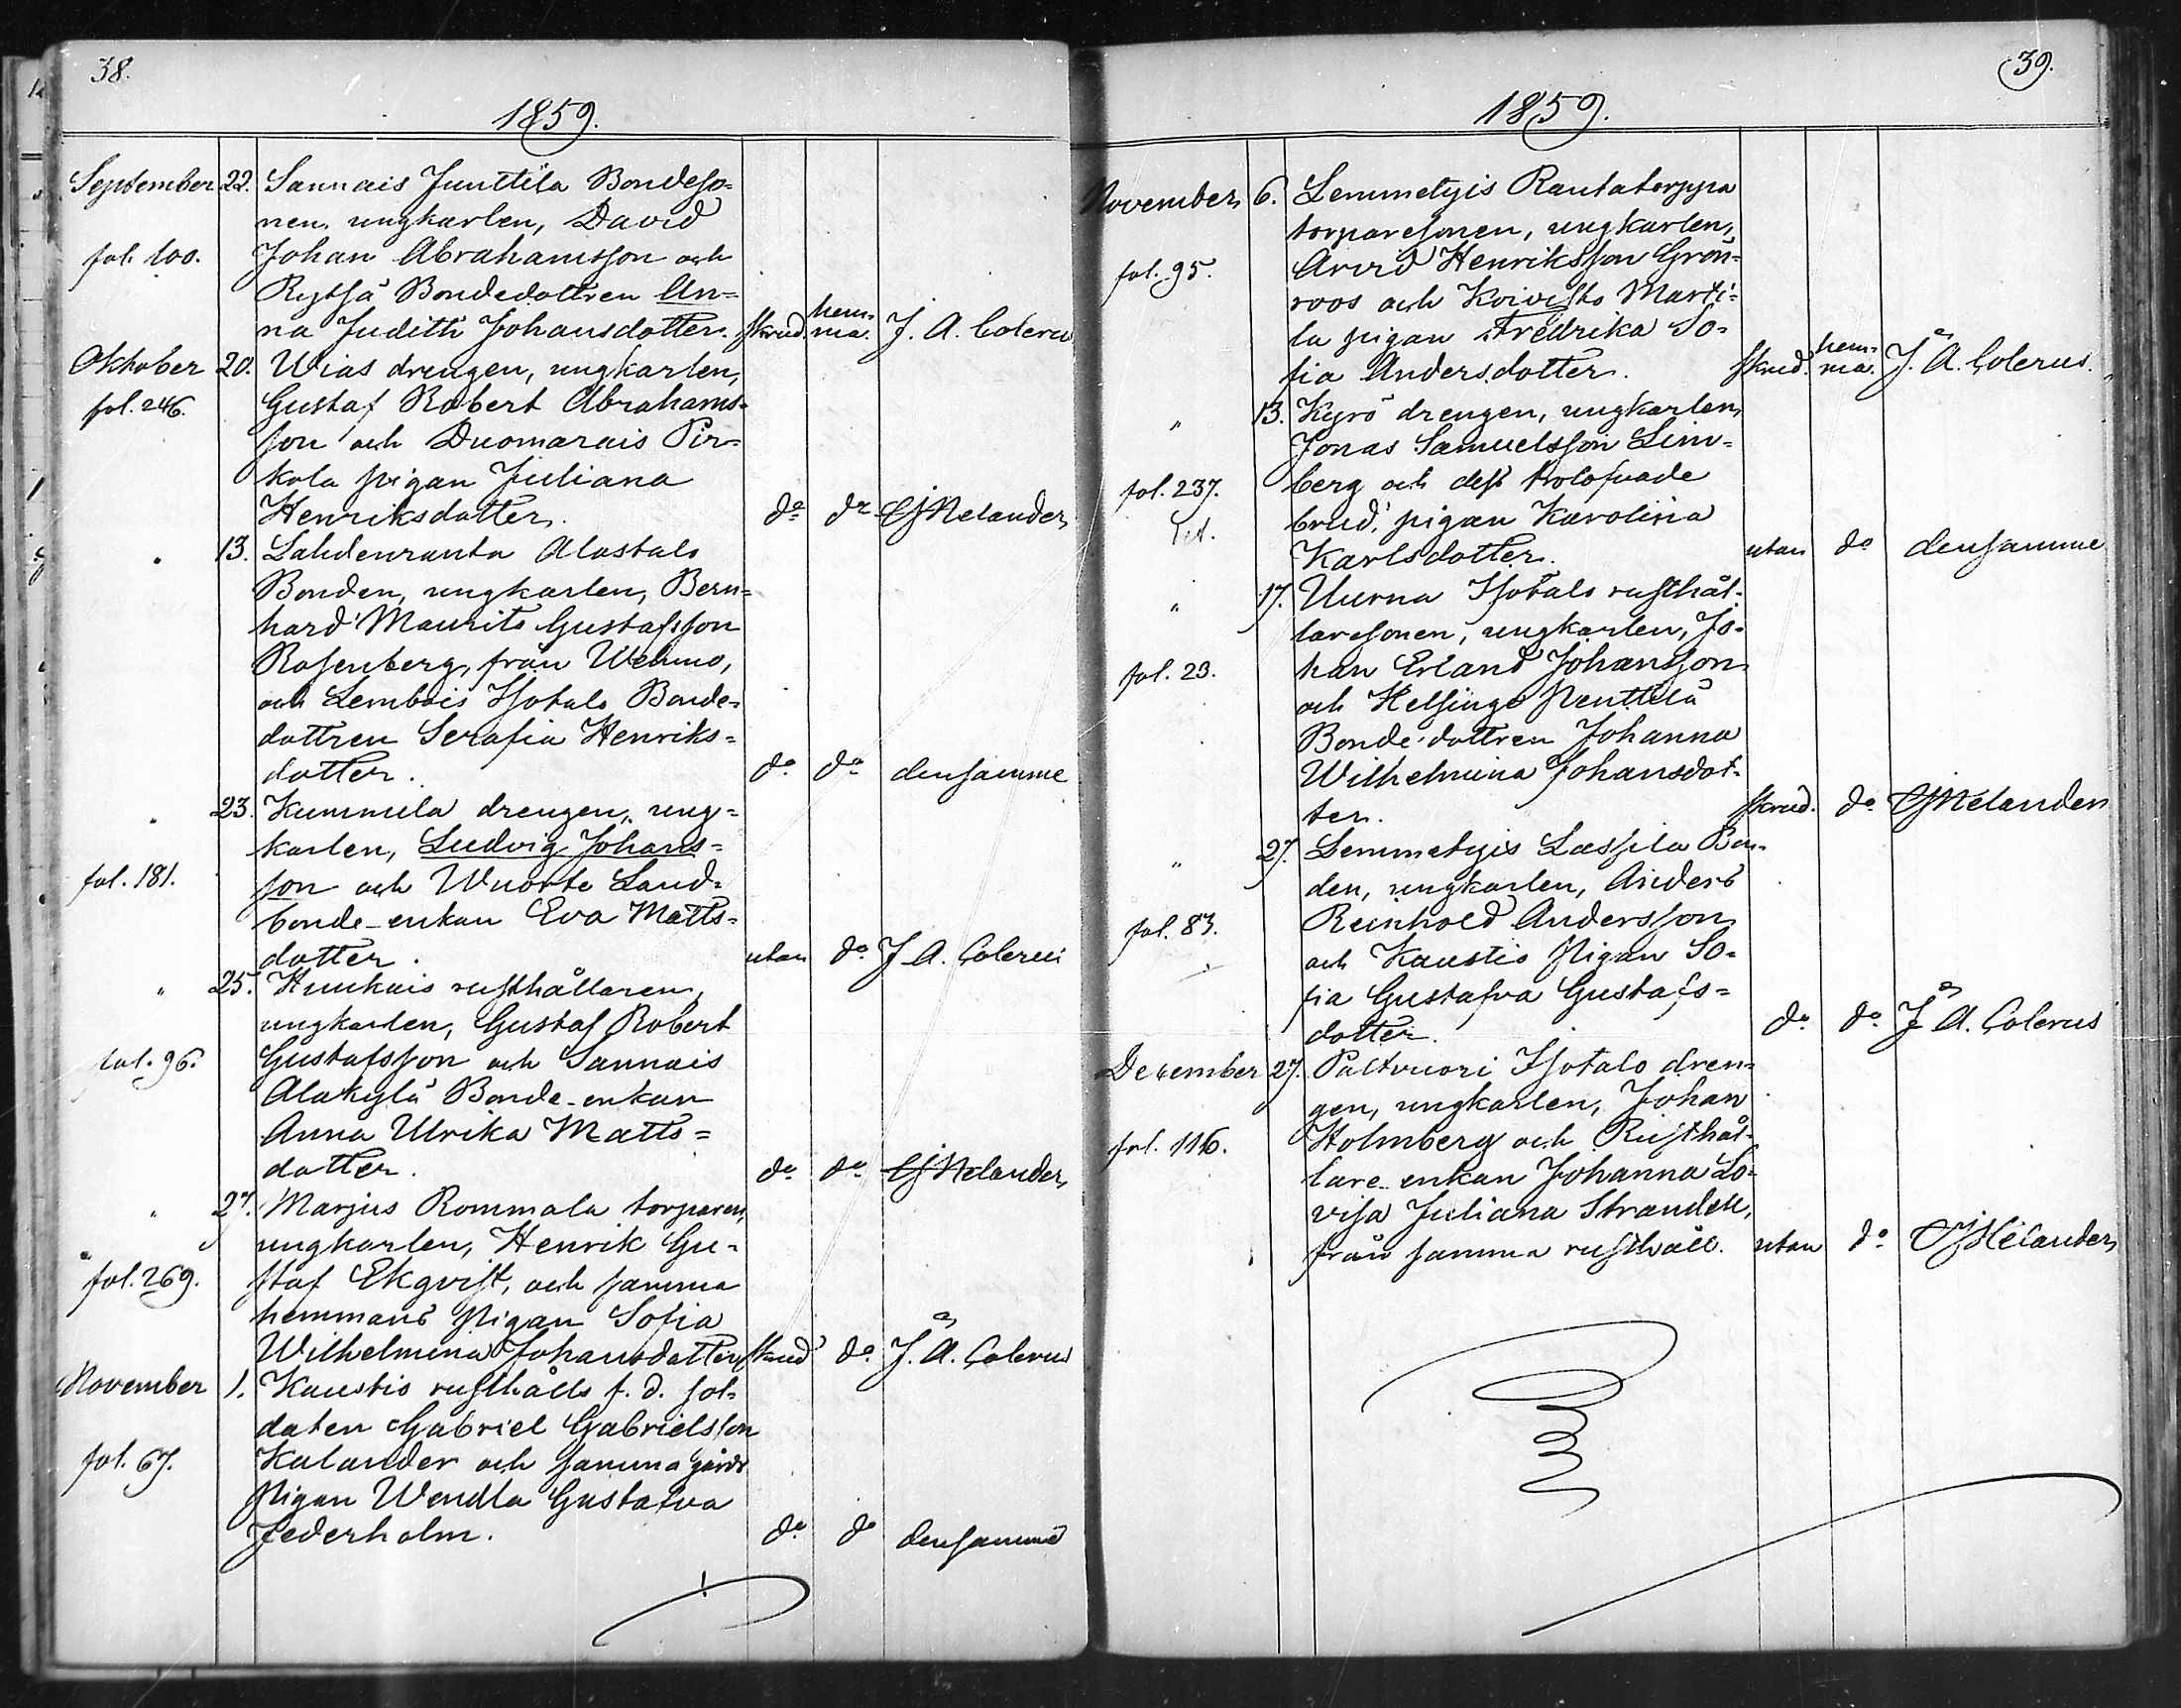 38.
1859.
September 22. Sannais Junttila Bondeso-
nen, ungkarlen, David
fol. 100. Johan Abrahamsson och
Rytsä Bondedottren An-
na Judith Johansdotter. skrud. hem-ma. J. A. Coleru
Oktober 20. Wias drengen, ungkarlen,
fol. 246. Gustaf Robert Abrahams-
son och Duomarais Pir-
kola pigan Juliana
Henriksdotter. do do Melander
" 13. Lahdenranta Alastalo
Bonden, ungkarlen, Bern-
hard Maurits Gustafsson
Rosenberg, från Wehmo,
och Lembois Isotalo Bonde-
dottren Serafia Henriks-
dotter. do do densamme
" 23. Kummila drengen, ung-
karlen, Ludvig Johans-
fol. 181. son och Wuorte Land-
bonde-enkan Eva Matts-
dotter. utan do J. A. Colerus
" 25. Hunkais rusthållaren,
ungkarlen, Gustaf Robert
fol. 96. Gustafsson och Sannais
Alakylä Bonde-enkan
Anna Ulrika Matts-
dotter. do do Melander
" 27. Marjus Rommala torparen,
ungkarlen, Henrik Gu-
fol. 269. staf Ekqvist, och samma
hemmans pigan Sofia
Wilhelmina Johansdotter skrud do J. Å. Colerus
November 1. Kaustis rusthålls f. d. sol-
daten Gabriel Gabrielsson
fol. 67. Kalander och samma gårds
pigan Wendla Gustafva
Jederholm. do do densamme
39.
1859.
November 6. Lemmetyis Rautatorppa
torparesonen, ungkarlen,
fol. 95. Arvid Henriksson Grön-
roos och Koivisto Marti-
la pigan Fredrika So-
fia Andersdotter. skrud. hem-ma. J. Å. Colerus.
" 13. Kyrö drengen, ungkarlen
Jonas Samuelsson Lim-
fol. 237. berg och dess trolofvade
brud, pigan Karolina
Karlsdotter. utan do densamme
" 17. Uurna Isotalo rusthål-
laresonen, ungkarlen, Jo-
fol. 23. han Erland Johansson
och Helsinge Penttilä
Bonde-dottren Johanna
Wilhelmina Johansdot-
ter. skrud. do Melander
" 27. Lemmetyis Lassila Bon-
den, ungkarlen, Anders
fol. 83. Reinhold Andersson
och Kaustis pigan So-
fia Gustafva Gustafs-
dotter. do do J. Å. Colerus
December 27. Paltvuori Isotalo dren-
gen, ungkarlen, Johan
fol. 116. Holmberg och Rusthål-
lare-enkan Johanna Lo-
visa Juliana Strandell,
från samma rusthåll. utan do Melander